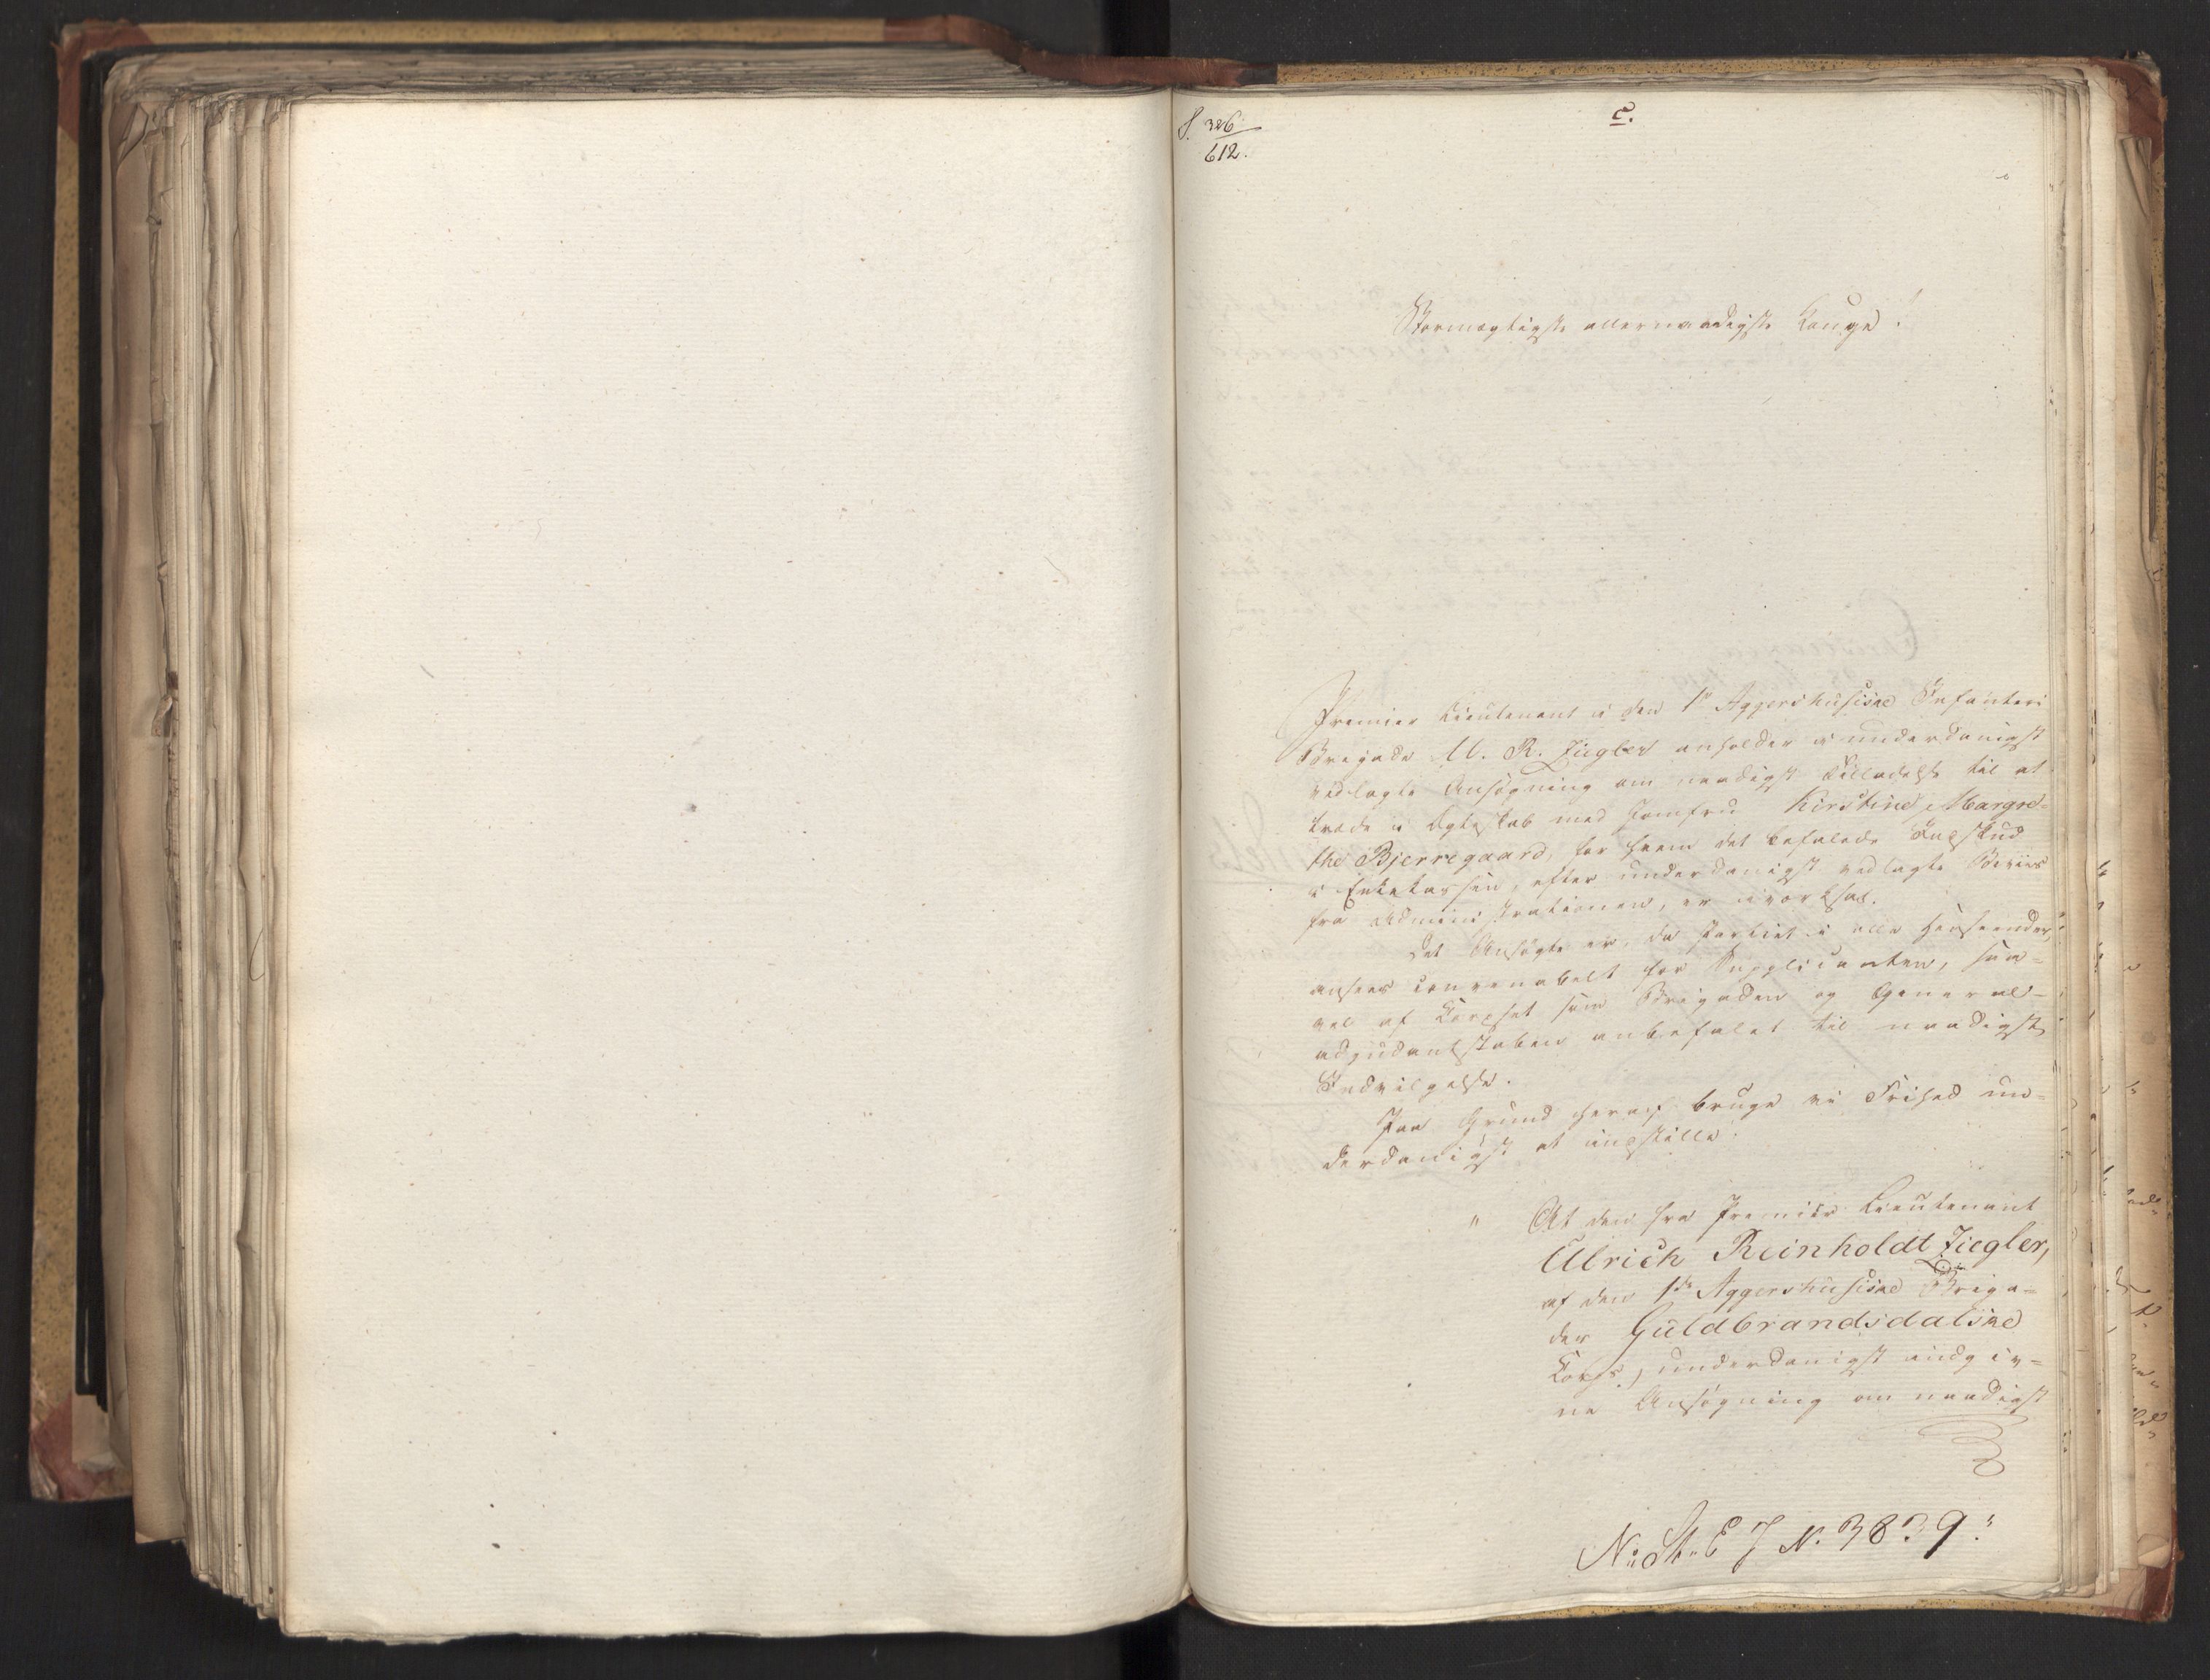 c.
S. 326/612.
Stormægtigste allernaadigste Konge!
Premier Lieutenant i den 1ste Aggershusiske Infanteri
Brigade U. R. Ziegler anholder i underdanigst
vedlagte Ansøgning om naadigst Tilladelse til at
træde i Ægteskab med Jomfru Kirstine Margre-
the Bjerregaard, for hvem det befalede Indskud
i Enkekassen, efter underdanigst vedlagte Beviis
fra Administrationen, er iværksat.
Det Ansøgte er, da Partiet i alle Henseender
ansees convenabelt for Supplicanten, saa-
vel af Korpset som Brigaden og General-
adjudantstaben anbefalet til naadigst
Indvilgelse.
Paa Grund heraf bruge vi Frihed un-
derdanigst at indstille:
" At den fra Premier Lieutenant
Ulrich Reinholdt Ziegler,
af den 1ste Aggershusiske Briga-
des Guldbrandsdalske
Korps, underdanigst indgiv-
ne Ansøgning om naadigst
N: St. E J N. 3839: